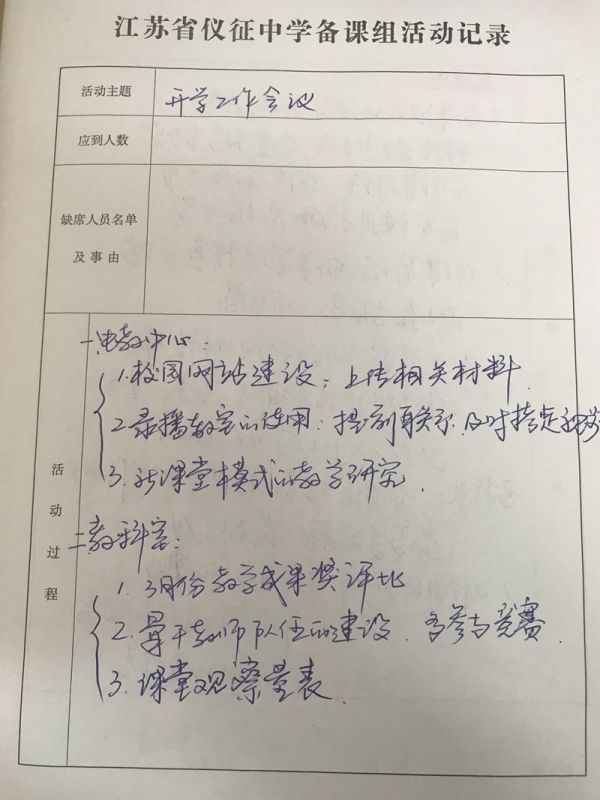 江苏省仪征中学备课组活动记录
活动主题
开学工作会议
应到人数
缺席人员名单
及事由
活动过程
一.电教中心:
1.校园网站建设: 上传相关材料
2.录播教室的使用: 提前联系.及时指定
3.新课堂模式的教学研究.
二.教科室:
1. 3月份教学成果奖评比
2.骨干教师队伍的建设. 多参与竞赛.
3.课堂观察量表.